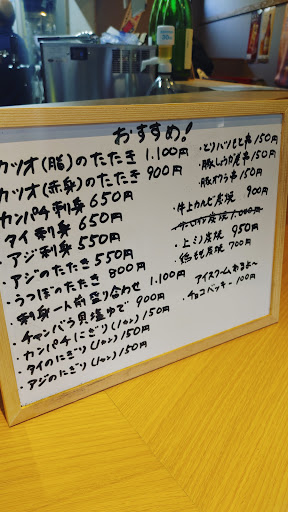 おすすめ!
カツオ(脂)のたたき 1.100円
カツオ(赤身)のたたき 900円
カンパチ刺身 650円
・タイ刺身 650円
・アジ刺身 550円
・アジのたたき 550円
・うつぼのたたき 800円
・刺身一人前盛り合わせ 1.100円
・チャンバラ貝塩ゆで 900円
・カンパチにぎり(1カン) 150円
・タイのにぎり(1カン) 150円
・アジのにぎり(1カン) 150円
・とりハツもと串 150円
・豚しょうが巻串 150円
・豚オクラ串 150円
・牛上カルビ炭焼 900円
炭焼 1.000円
・上ミノ炭焼 950円
炭焼 700円
アイスクリームあるよ〜
・チョコバッキー 100円